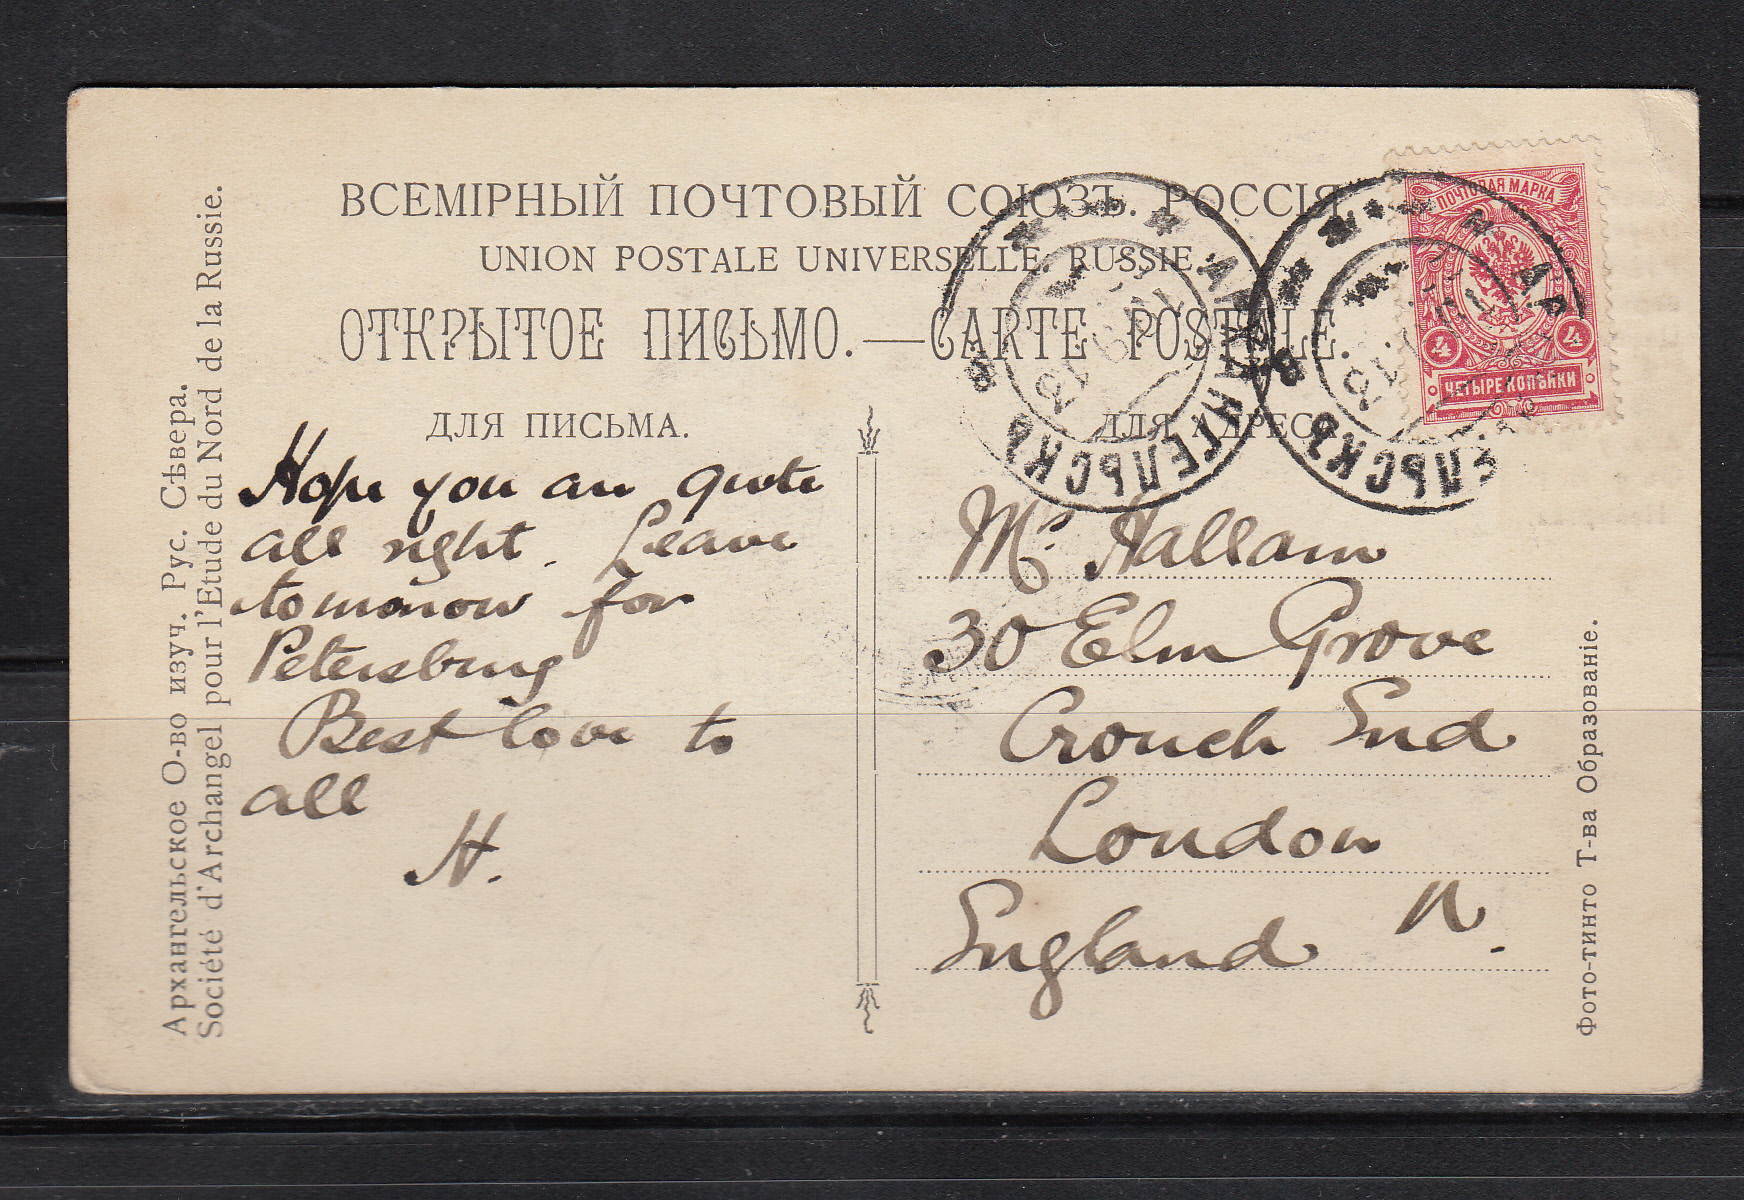 ВСЕМІРНЫЙ ПОЧТОВЫЙ СОЮЗЪ. РОССІЯ
UNION POSTALE UNIVERSELLE. RUSSIE
ОТКРЫТОЕ ПИСЬМО.—CARTE POSTALE.
ДЛЯ ПИСЬМА.
ДЛЯ АДРЕС
Hope you are quite
all right. Leave
tomorrow for
Petersburg
Best love to
all
H.
Mr. Hallam
30 Elm Grove
Crouch End
London
N.
England
ПОЧТОВАЯ МАРКА
4 4
ЧЕТЫРЕ КОПѢЙКИ
АРХАНГЕЛЬСКЪ
ЕЛЬСКЪ
Архангельское О-во изуч. Рус. Сѣвера.
Société d'Archangel pour l'Etude du Nord de la Russie.
Фото-тинто Т-ва Образованіе.